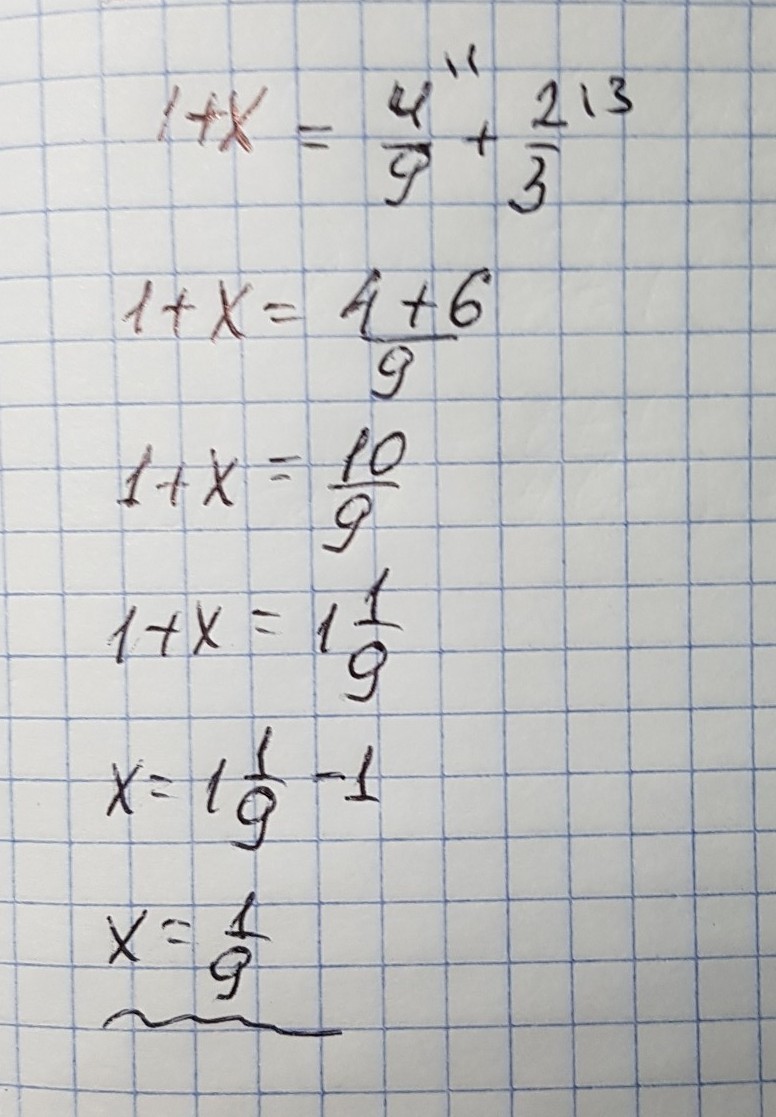 1+x = 4/9 \1 + 2/3 \3
1+x = 4+6/9
1+x = 10/9
1+x = 1 1/9
x = 1 1/9 - 1
x = 1/9